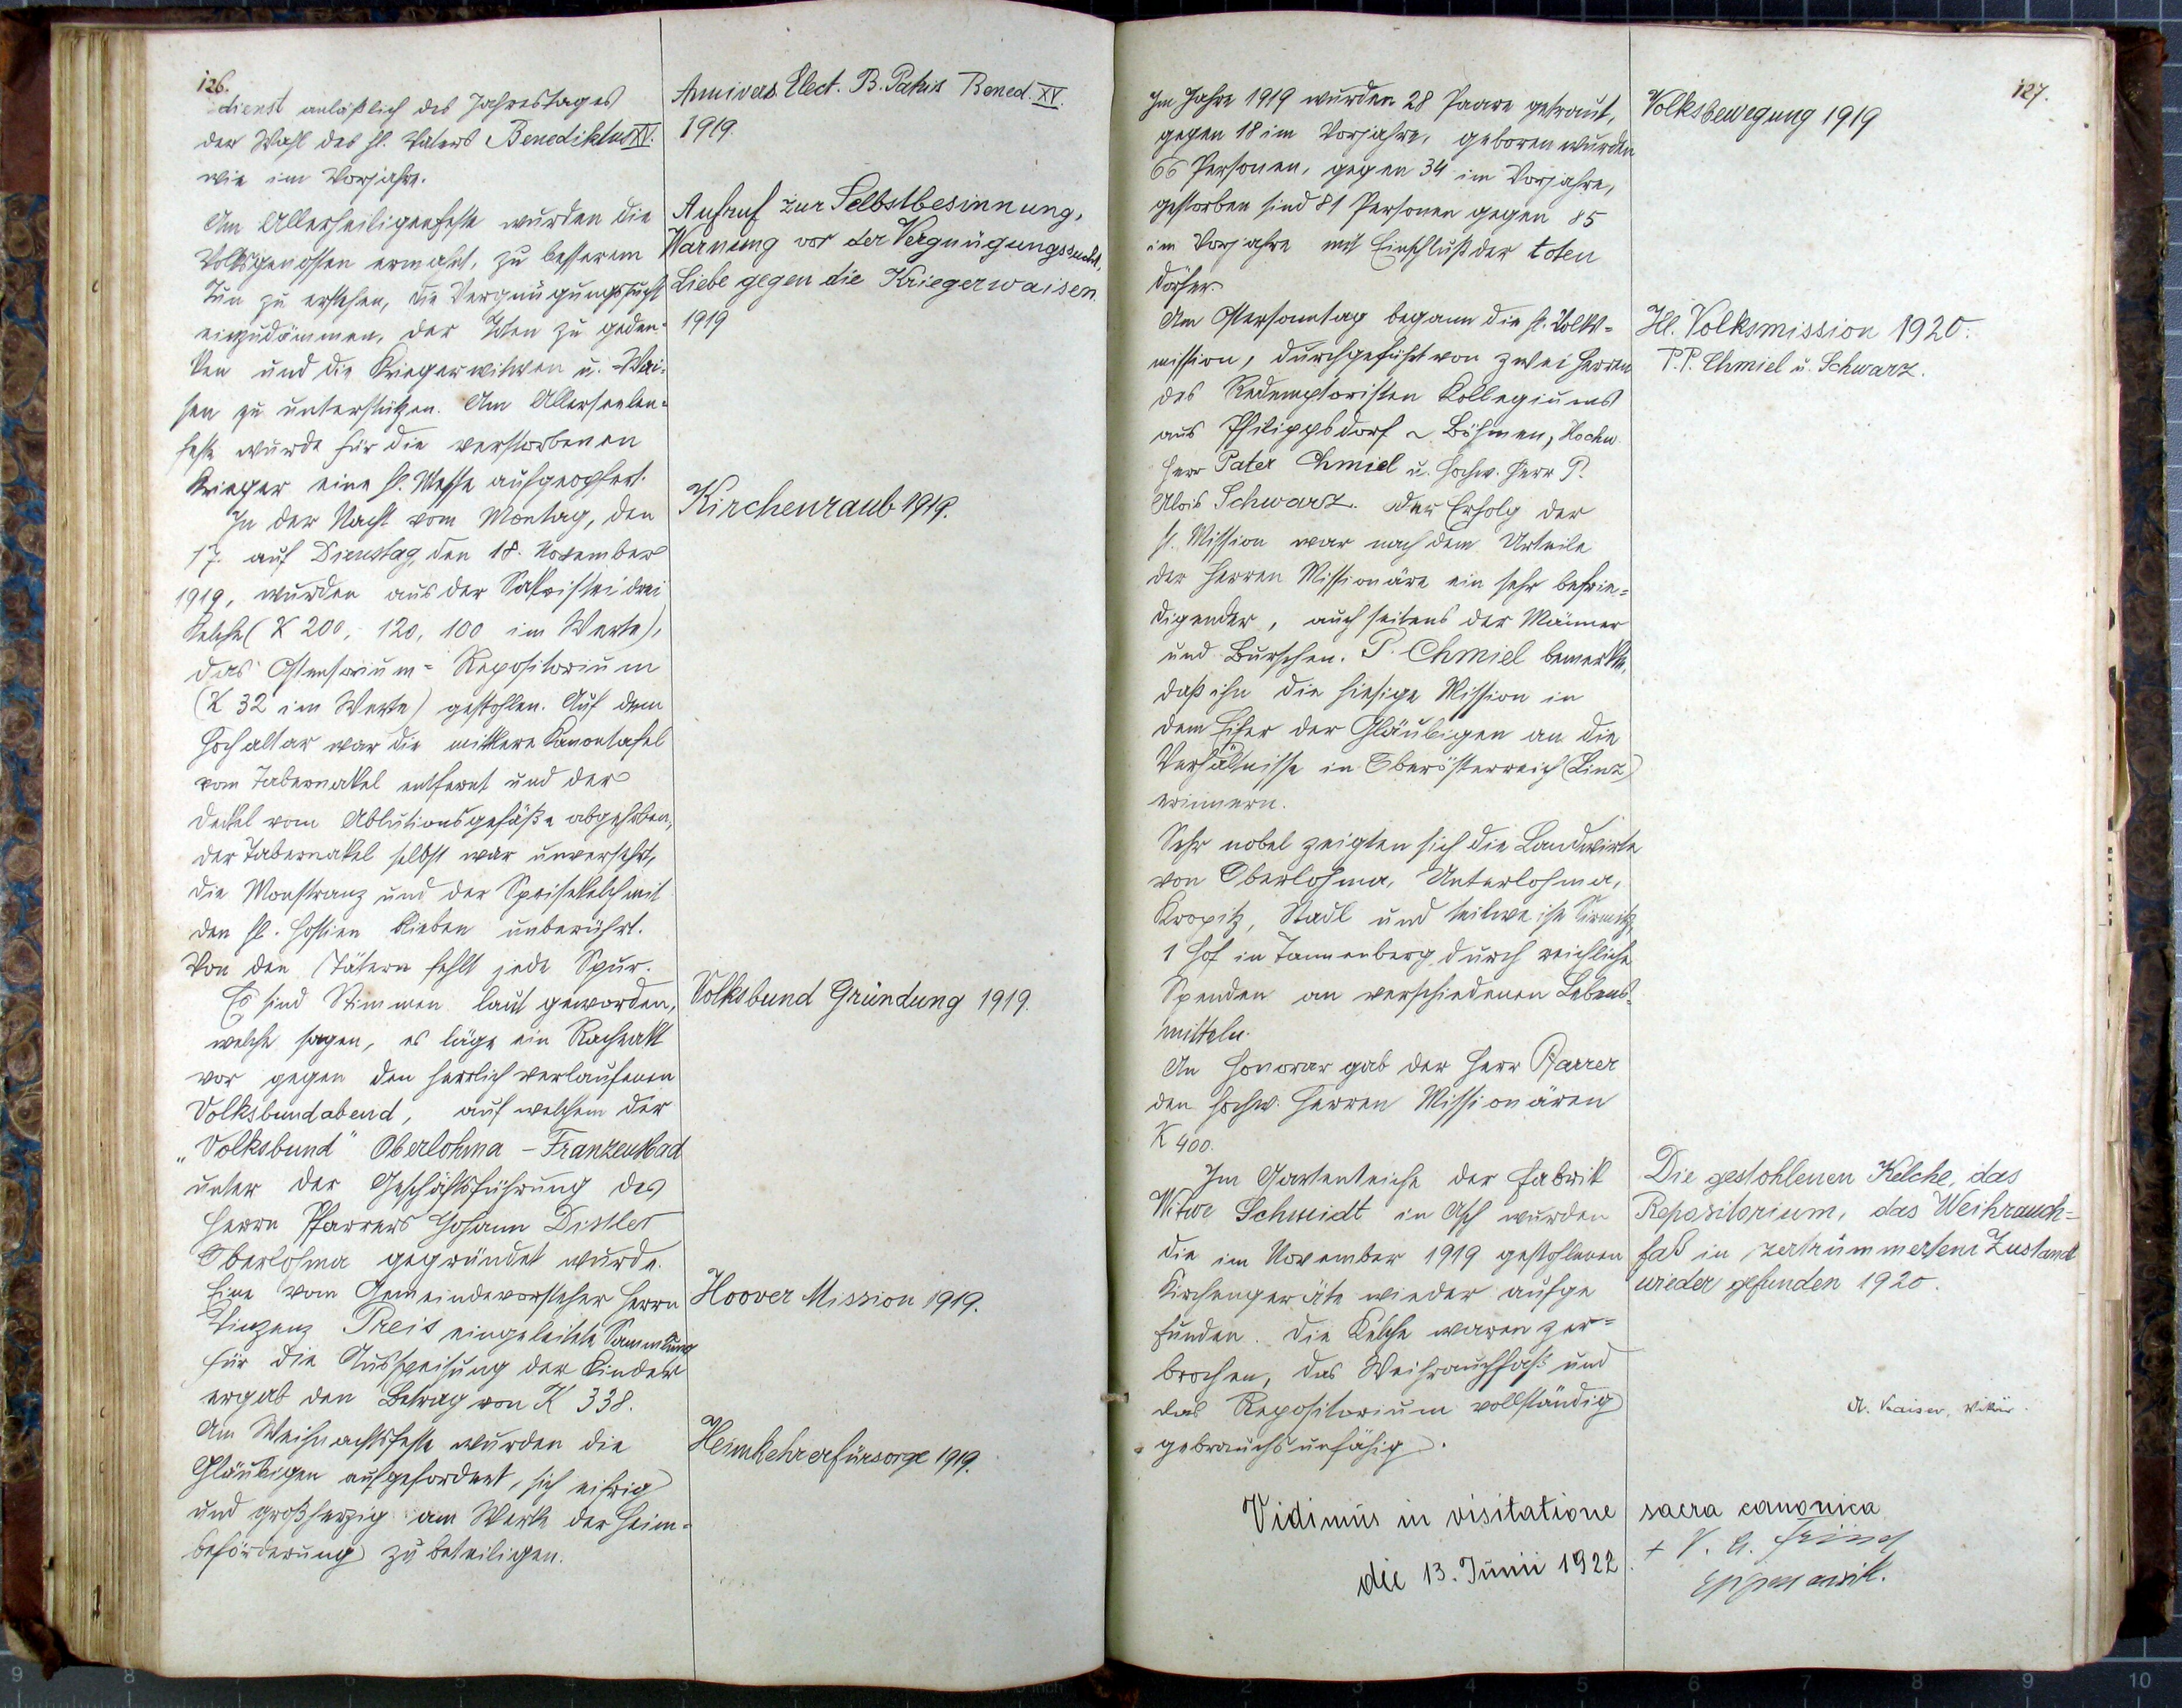 126.
dienst anläßlich des Jahrestages
der Wahl des hl. Vaters Benediktus XV.
wie im Vorjahre.
Am Allerheiligenfeste wurden die
Volksgenossen ermahnt, zu besserem
Tun zu erstehen, die Vergnügungssucht
einzudämmen, der Toten zu geden-
ken und die Kriegerwitwen u. -Wai-
sen zu unterstützen. Am Allerseelen-
feste wurde für die verstorbenen
Krieger eine hl. Messe aufgeopfert.
In der Nacht vom Montag, den
17. auf Dienstag, den 18. November
1919, wurden aus der Sakristei drei
Kelche (K 200, 120, 100 im Werte),
das Ostensorium-Repositorium
(K 32 im Werte) gestohlen. Auf dem
Hochaltar war die mittlere Kanontafel
vom Tabernakel entfernt und der
Deckel vom Ablutionsgefäße abgehoben,
der Tabernakel selbst war unversehrt,
die Monstranz und der Speisekelch mit
den hl. Hostien blieben unberührt.
Von den Tätern fehlt jede Spur.
Es sind Stimmen laut geworden,
welche sagen, es läge ein Racheakt
vor gegen den herrlich verlaufenen
Volksbundabend, auf welchem der
„Volksbund" Oberlohma - Franzensbad
unter der Geschäftsführung des
Herrn Pfarrers Johann Distler
Oberlohma gegründet wurde.
Eine vom Gemeindevorsteher Herrn
Vinzenz Preis eingeleitete Sammlung
für die Ausspeisung der Kinder
ergab den Betrag von K 338.
Am Weihnachtsfeste wurden die
Gläubigen aufgefordert, sich eifrig
und großherzig am Werke der Heim-
beförderung zu beteiligen.
Annivers. Elect. B. Patris Bened. XV.
1919.
Aufruf zur Selbstbesinnung,
Warnung vor der Vergnügungssucht,
Liebe gegen die Kriegerwaisen.
1919
Kirchenraub 1919.
Volksbund Gründung 1919.
Hoover Mission 1919.
Heimkehrerfürsorge 1919.
127.
Im Jahre 1919 wurden 28 Paare getraut,
gegen 18 im Vorjahre, geboren wurden
66 Personen, gegen 34 im Vorjahre,
gestorben sind 81 Personen gegen 85
im Vorjahre mit Einschluß der toten
Dörfer.
Am Ostersonntag begann die hl. Volks-
mission, durchgeführt von zwei Herren
des Redemptoristen Kollegiums
aus Philippsdorf ~ Böhmen, Hochw.
Herr Pater Chmiel u. Hochw. Herr P.
Alois Schwarz. Der Erfolg der
hl. Mission war nach dem Urteile
der Herren Missionäre ein sehr befrie-
digender, auch seitens der Männer
und Burschen. P. Chmiel bemerkte,
daß ihn die hiesige Mission in
dem Eifer der Gläubigen an die
Verhältnisse in Oberösterreich (Linz)
erinnern.
Sehr nobel zeigten sich die Landwirte
von Oberlohma, Unterlohma,
Kropitz, Stadl und teilweise Sirmitz,
1 Hof in Tannenberg durch reichliche
Spenden an verschiedenen Lebens-
mitteln.
An Honorar gab der Herr Pfarrer
den hochw. Herren Missionären
K 400.
Im Gartenteiche der Fabrik
Witwe Schmidt in Asch wurden
die im November 1919 gestohlenen
Kirchengeräte wieder aufge
funden. Die Kelche waren zer-
brochen, das Weihrauchfaß und
das Repositorium vollständig
gebrauchsunfähig.
Volksbewegung 1919
Hl. Volksmission 1920.
P.P. Chmiel u. Schwarz.
Die gestohlenen Kelche, das
Repositorium, das Weihrauch-
faß in zertrümmertem Zustand
wieder gefunden 1920.
A. Kaiser, Vikar.
Vidimus in visitatione sacra canonica
die 13. Junii 1922.